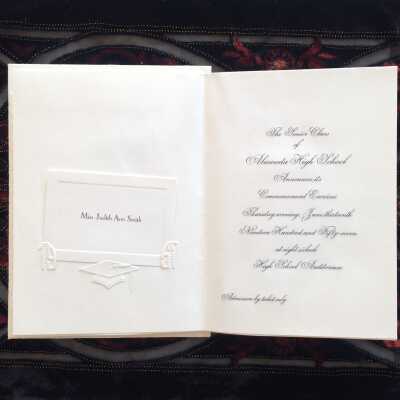 Miss Judith Ann Smith
The Senior Class
of
Alameda High School
Announces its
Commencement Exercises
Thursday evening, June thirteenth
Nineteen Hundred and Fifty-seven
at eight o'clock
High School Auditorium
Admission by ticket only